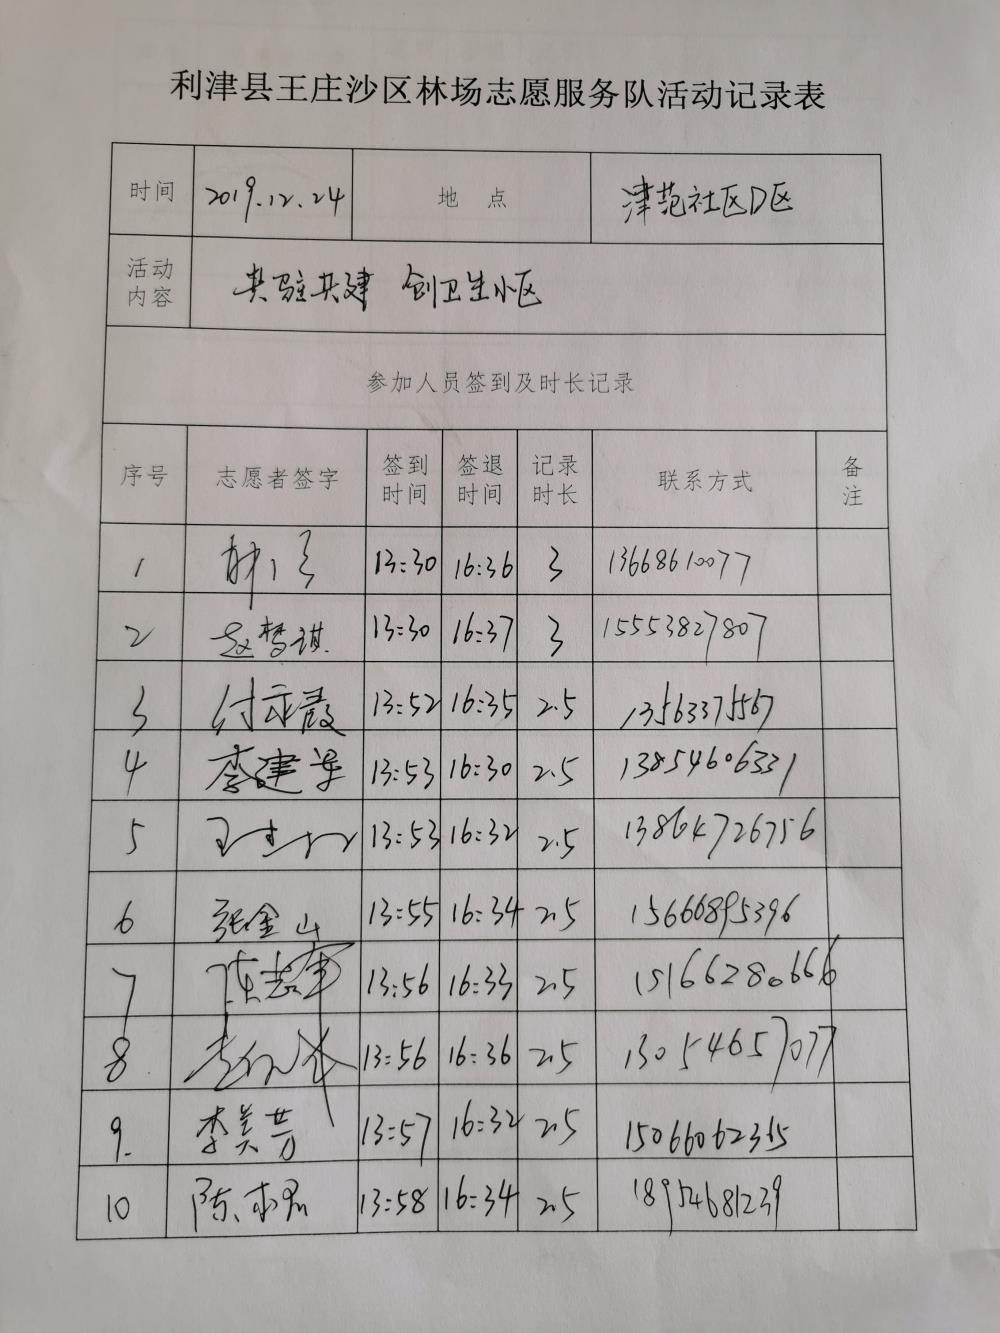 利津县王庄沙区林场志愿服务队活动记录表
时间 2019.12.24 地 点 津苑社区D区
活动内容 共驻共建 创卫生小区
参加人员签到及时长记录
序号 志愿者签字 签到时间 签退时间 记录时长 联系方式 备注
1 13:30 16:36 3 13668610077
2 赵梦琪 13:30 16:37 3 15553827807
3 13:52 16:35 2.5 13563375567
4 李建华 13:53 16:30 2.5 13854606331
5 13:53 16:32 2.5 13864726756
6 张金山 13:55 16:34 2.5 15666895396
7 陈志军 13:56 16:33 2.5 15166280666
8 13:56 16:36 2.5 13054657077
9. 李美芳 13:57 16:32 2.5 15066062365
10 13:58 16:34 2.5 18954681239